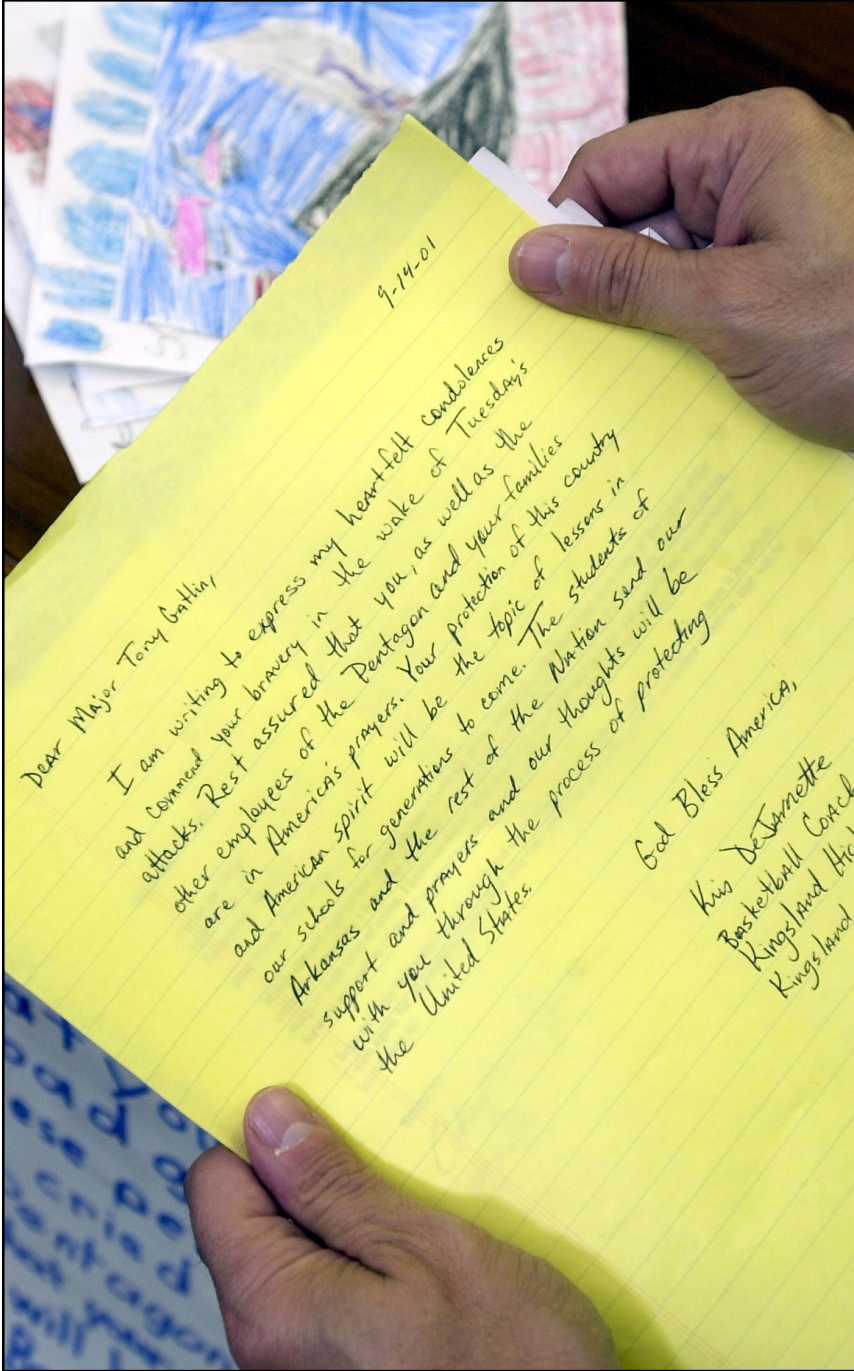 9-14-01
Dear Major Tony Gattin,
I am writing to express my heartfelt condolences
and commend your bravery in the wake of Tuesday's
attacks. Rest assured that you, as well as the
other employees of the Pentagon and your families
are in America's prayers. Your protection of this country
and American spirit will be the topic of lessons in
our schools for generations to come. The students of
Arkansas and the rest of the Nation send our
support and prayers and our thoughts will be
with you through the process of protecting
the United States.
God Bless America,
Kris DeJarnette
Basketball Coach
Kingsland
Kingsland
bad
cried
will